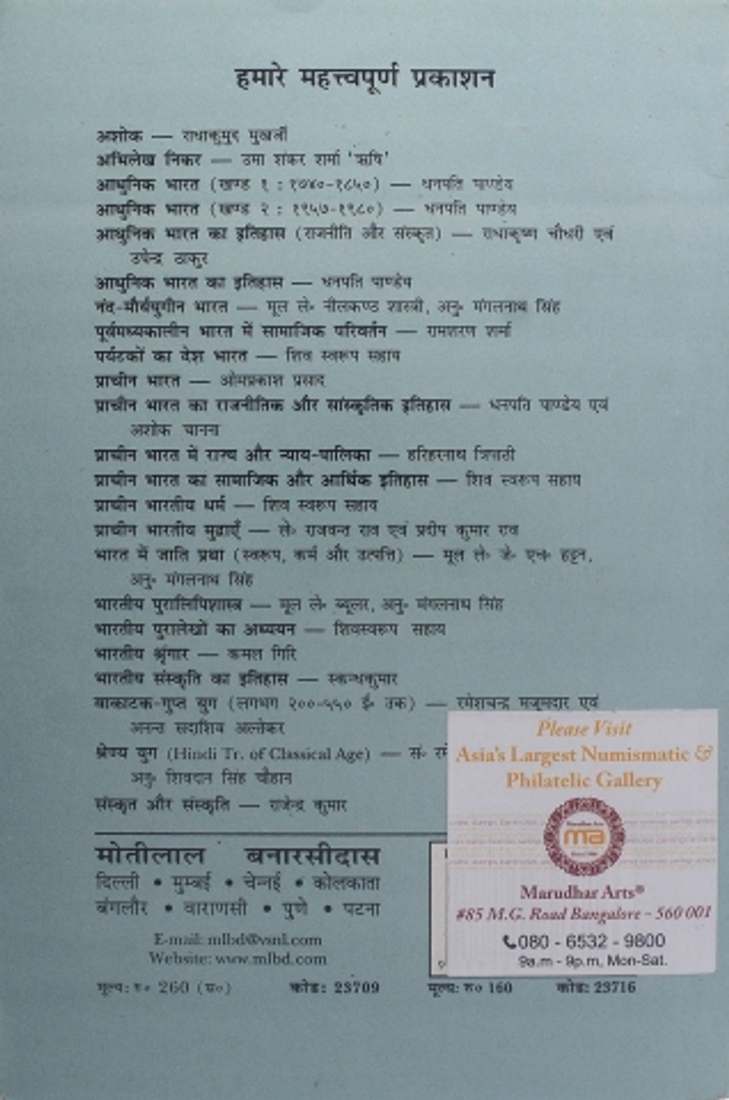 हमारे महत्त्वपूर्ण प्रकाशन
अशोक — राधाकुमुद मुखर्जी
अभिलेख निकर — उमा शंकर शर्मा 'ऋषि'
आधुनिक भारत (खण्ड १ : १७४०-१८५०) — धनपति पाण्डेय
आधुनिक भारत (खण्ड २ : १९५७-१९८०) — धनपति पाण्डेय
आधुनिक भारत का इतिहास (राजनीति और संस्कृत) — राधाकृष्ण चौधरी एवं
उपेन्द्र ठाकुर
आधुनिक भारत का इतिहास — धनपति पाण्डेय
नंद-मौर्ययुगीन भारत — मूल ले॰ नीलकण्ठ शास्त्री, अनु॰ मंगलनाथ सिंह
पूर्वमध्यकालीन भारत में सामाजिक परिवर्तन — रामशरण शर्मा
पर्यटकों का देश भारत — शिव स्वरूप सहाय
प्राचीन भारत — ओमप्रकाश प्रसाद
प्राचीन भारत का राजनीतिक और सांस्कृतिक इतिहास — धनपति पाण्डेय एवं
अशोक चानना
प्राचीन भारत में राज्य और न्याय-पालिका — हरिहरनाथ त्रिपाठी
प्राचीन भारत का सामाजिक और आर्थिक इतिहास — शिव स्वरूप सहाय
प्राचीन भारतीय धर्म — शिव स्वरूप सहाय
प्राचीन भारतीय मुद्राएँ — ले॰ राजवन्त राव एवं प्रदीप कुमार राव
भारत में जाति प्रथा (स्वरूप, कर्म और उत्पत्ति) — मूल ले॰ जे॰ एच॰ हट्टन,
अनु॰ मंगलनाथ सिंह
भारतीय पुरालिपिशास्त्र — मूल ले॰ ब्यूलर, अनु॰ मंगलनाथ सिंह
भारतीय पुरालेखों का अध्ययन — शिवस्वरूप सहाय
भारतीय श्रृंगार — कमल गिरि
भारतीय संस्कृति का इतिहास — स्कन्धकुमार
वाकाटक-गुप्त युग (लगभग २००-५५० ई॰ तक) — रमेशचन्द्र मजूमदार एवं
अनन्त सदाशिव अल्तेकर
श्रेण्य युग (Hindi Tr. of Classical Age) — सं॰
अनु॰ शिवदान सिंह चौहान
संस्कृत और संस्कृति — राजेन्द्र कुमार
मोतीलाल बनारसीदास
दिल्ली • मुम्बई • चेन्नई • कोलकाता
बंगलौर • वाराणसी • पुणे • पटना
E-mail: mlbd@vsnl.com
Website: www.mlbd.com
मूल्य: रु० 260 (स०) कोड: 23709 मूल्य: रु० 160 कोड: 23716
Please Visit
Asia's Largest Numismatic &
Philatelic Gallery
Marudhar Arts
ma
Marudhar Arts®
#85 M.G. Road Bangalore - 560 001
080 - 6532 - 9800
9a.m - 9p.m, Mon-Sat.